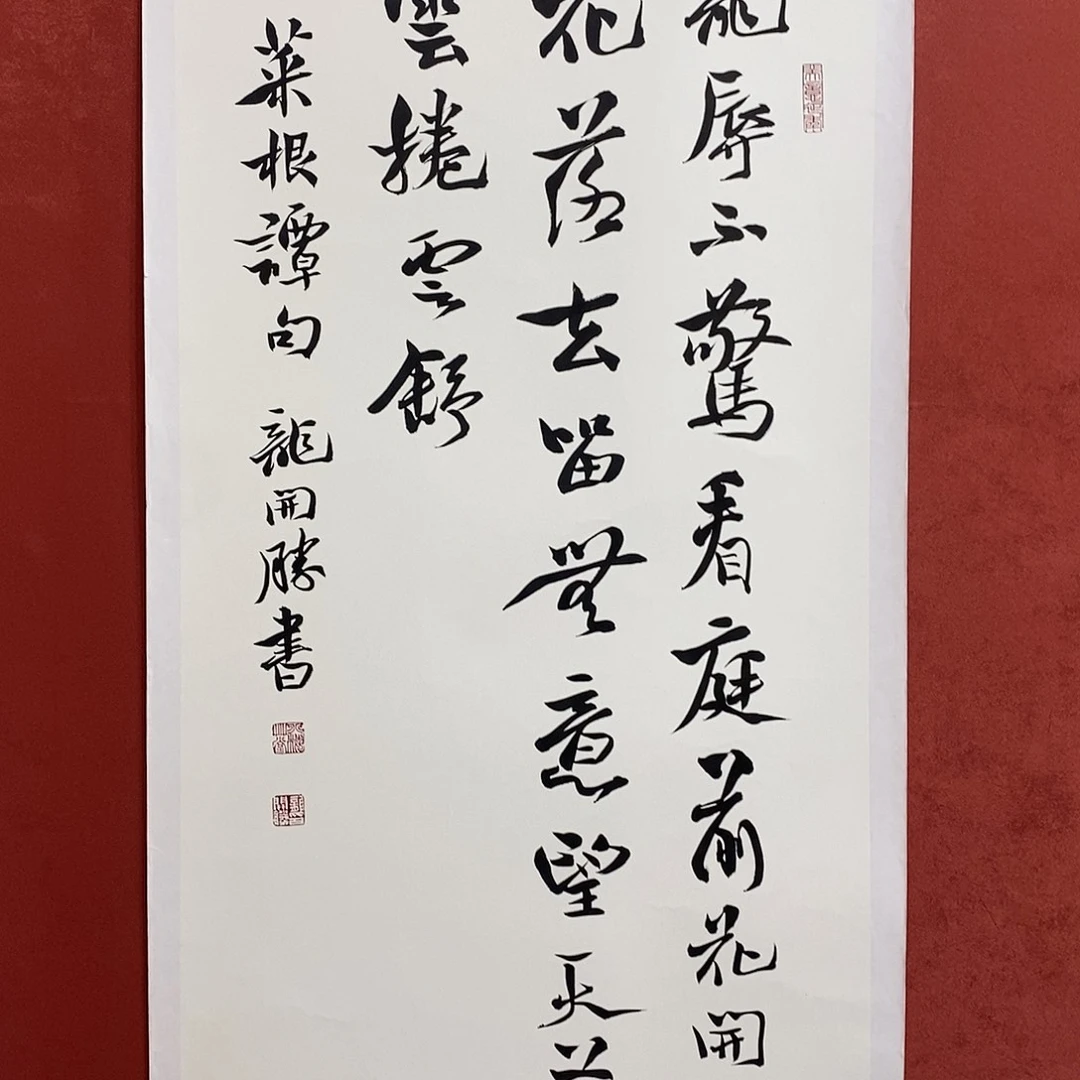 寵辱不驚看庭前花開
花落去留無意望天
雲捲雲舒
菜根譚句 龍開勝書